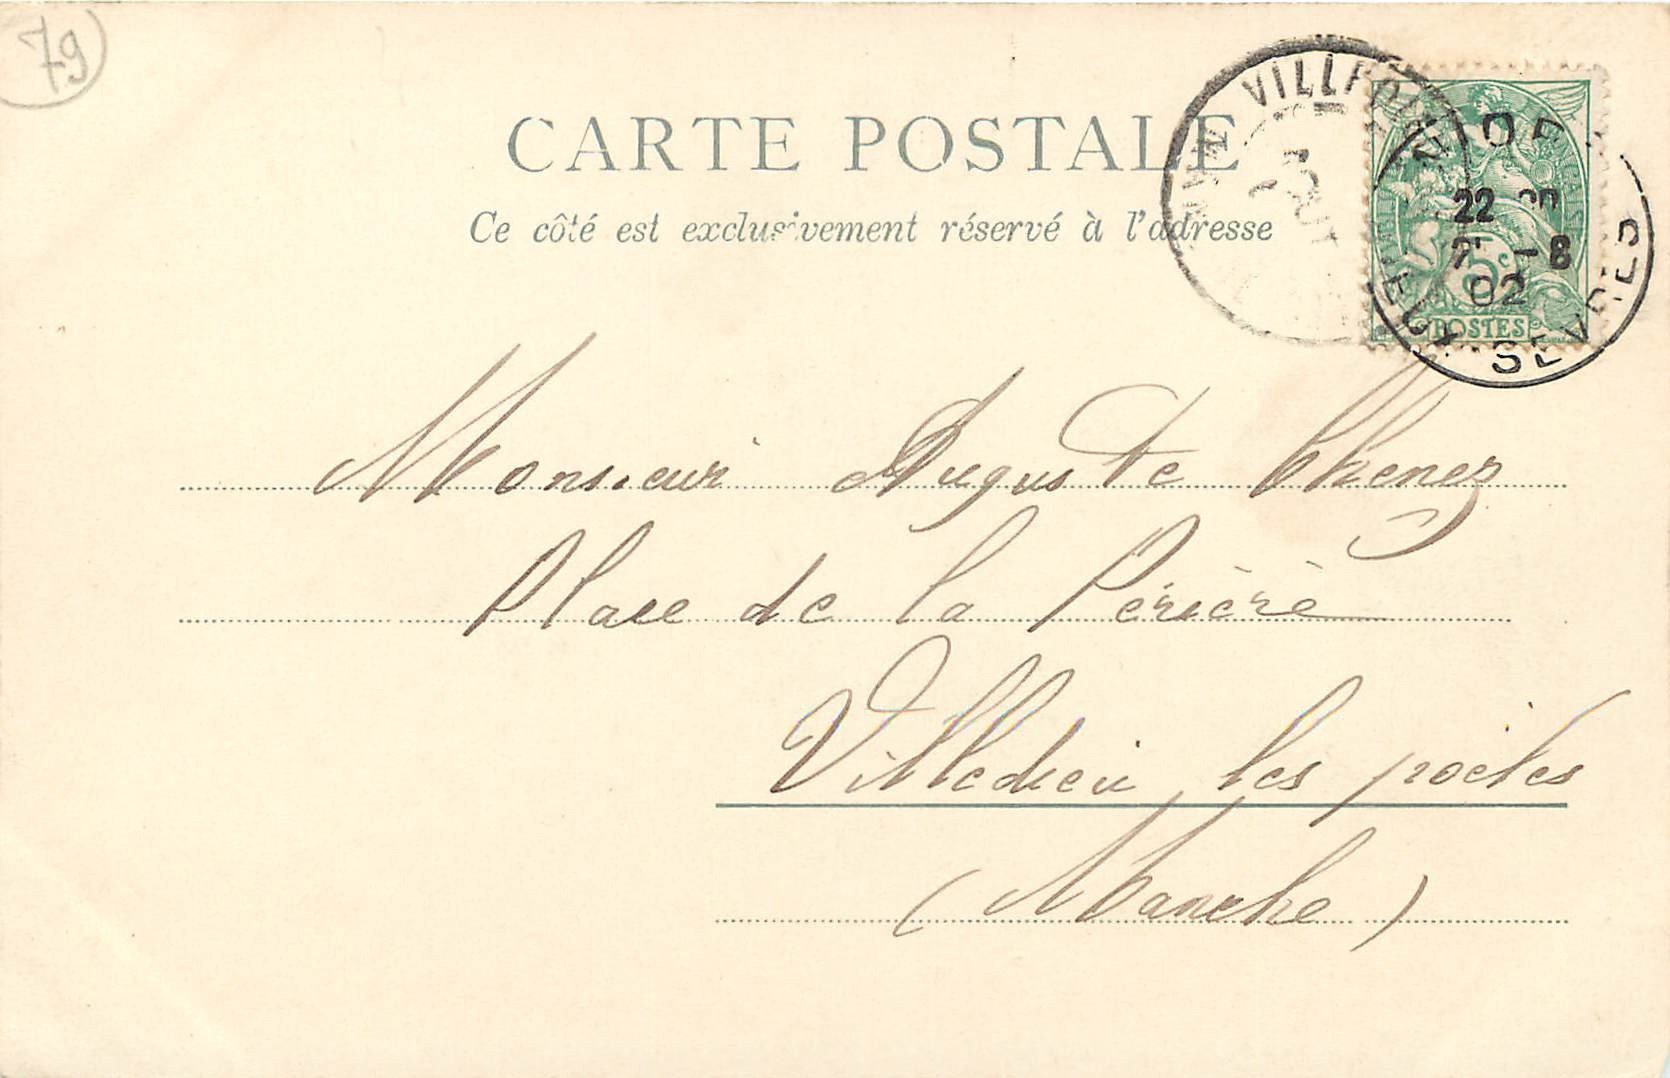 79
CARTE POSTALE
Ce côté est exclusivement réservé à l'adresse
NIORT
22
-8
02
DEUX-SEVRES
5c
POSTES
Monsieur Auguste Chenez
Place de la Périère
Villedieu les poêles
(Manche)